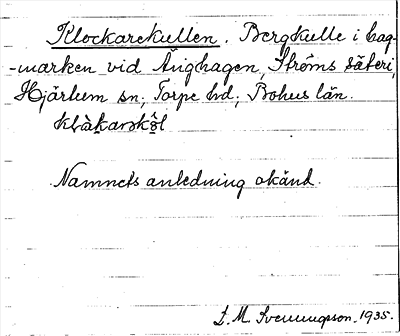 Klockarekullen. Bergkulle i hag-
-marken vid Änghagen, Ströms säteri,
Hjärtum sn; Torpe hd, Bohus län.
Namnets anledning okänd.
L. M. Svenungsson. 1935.